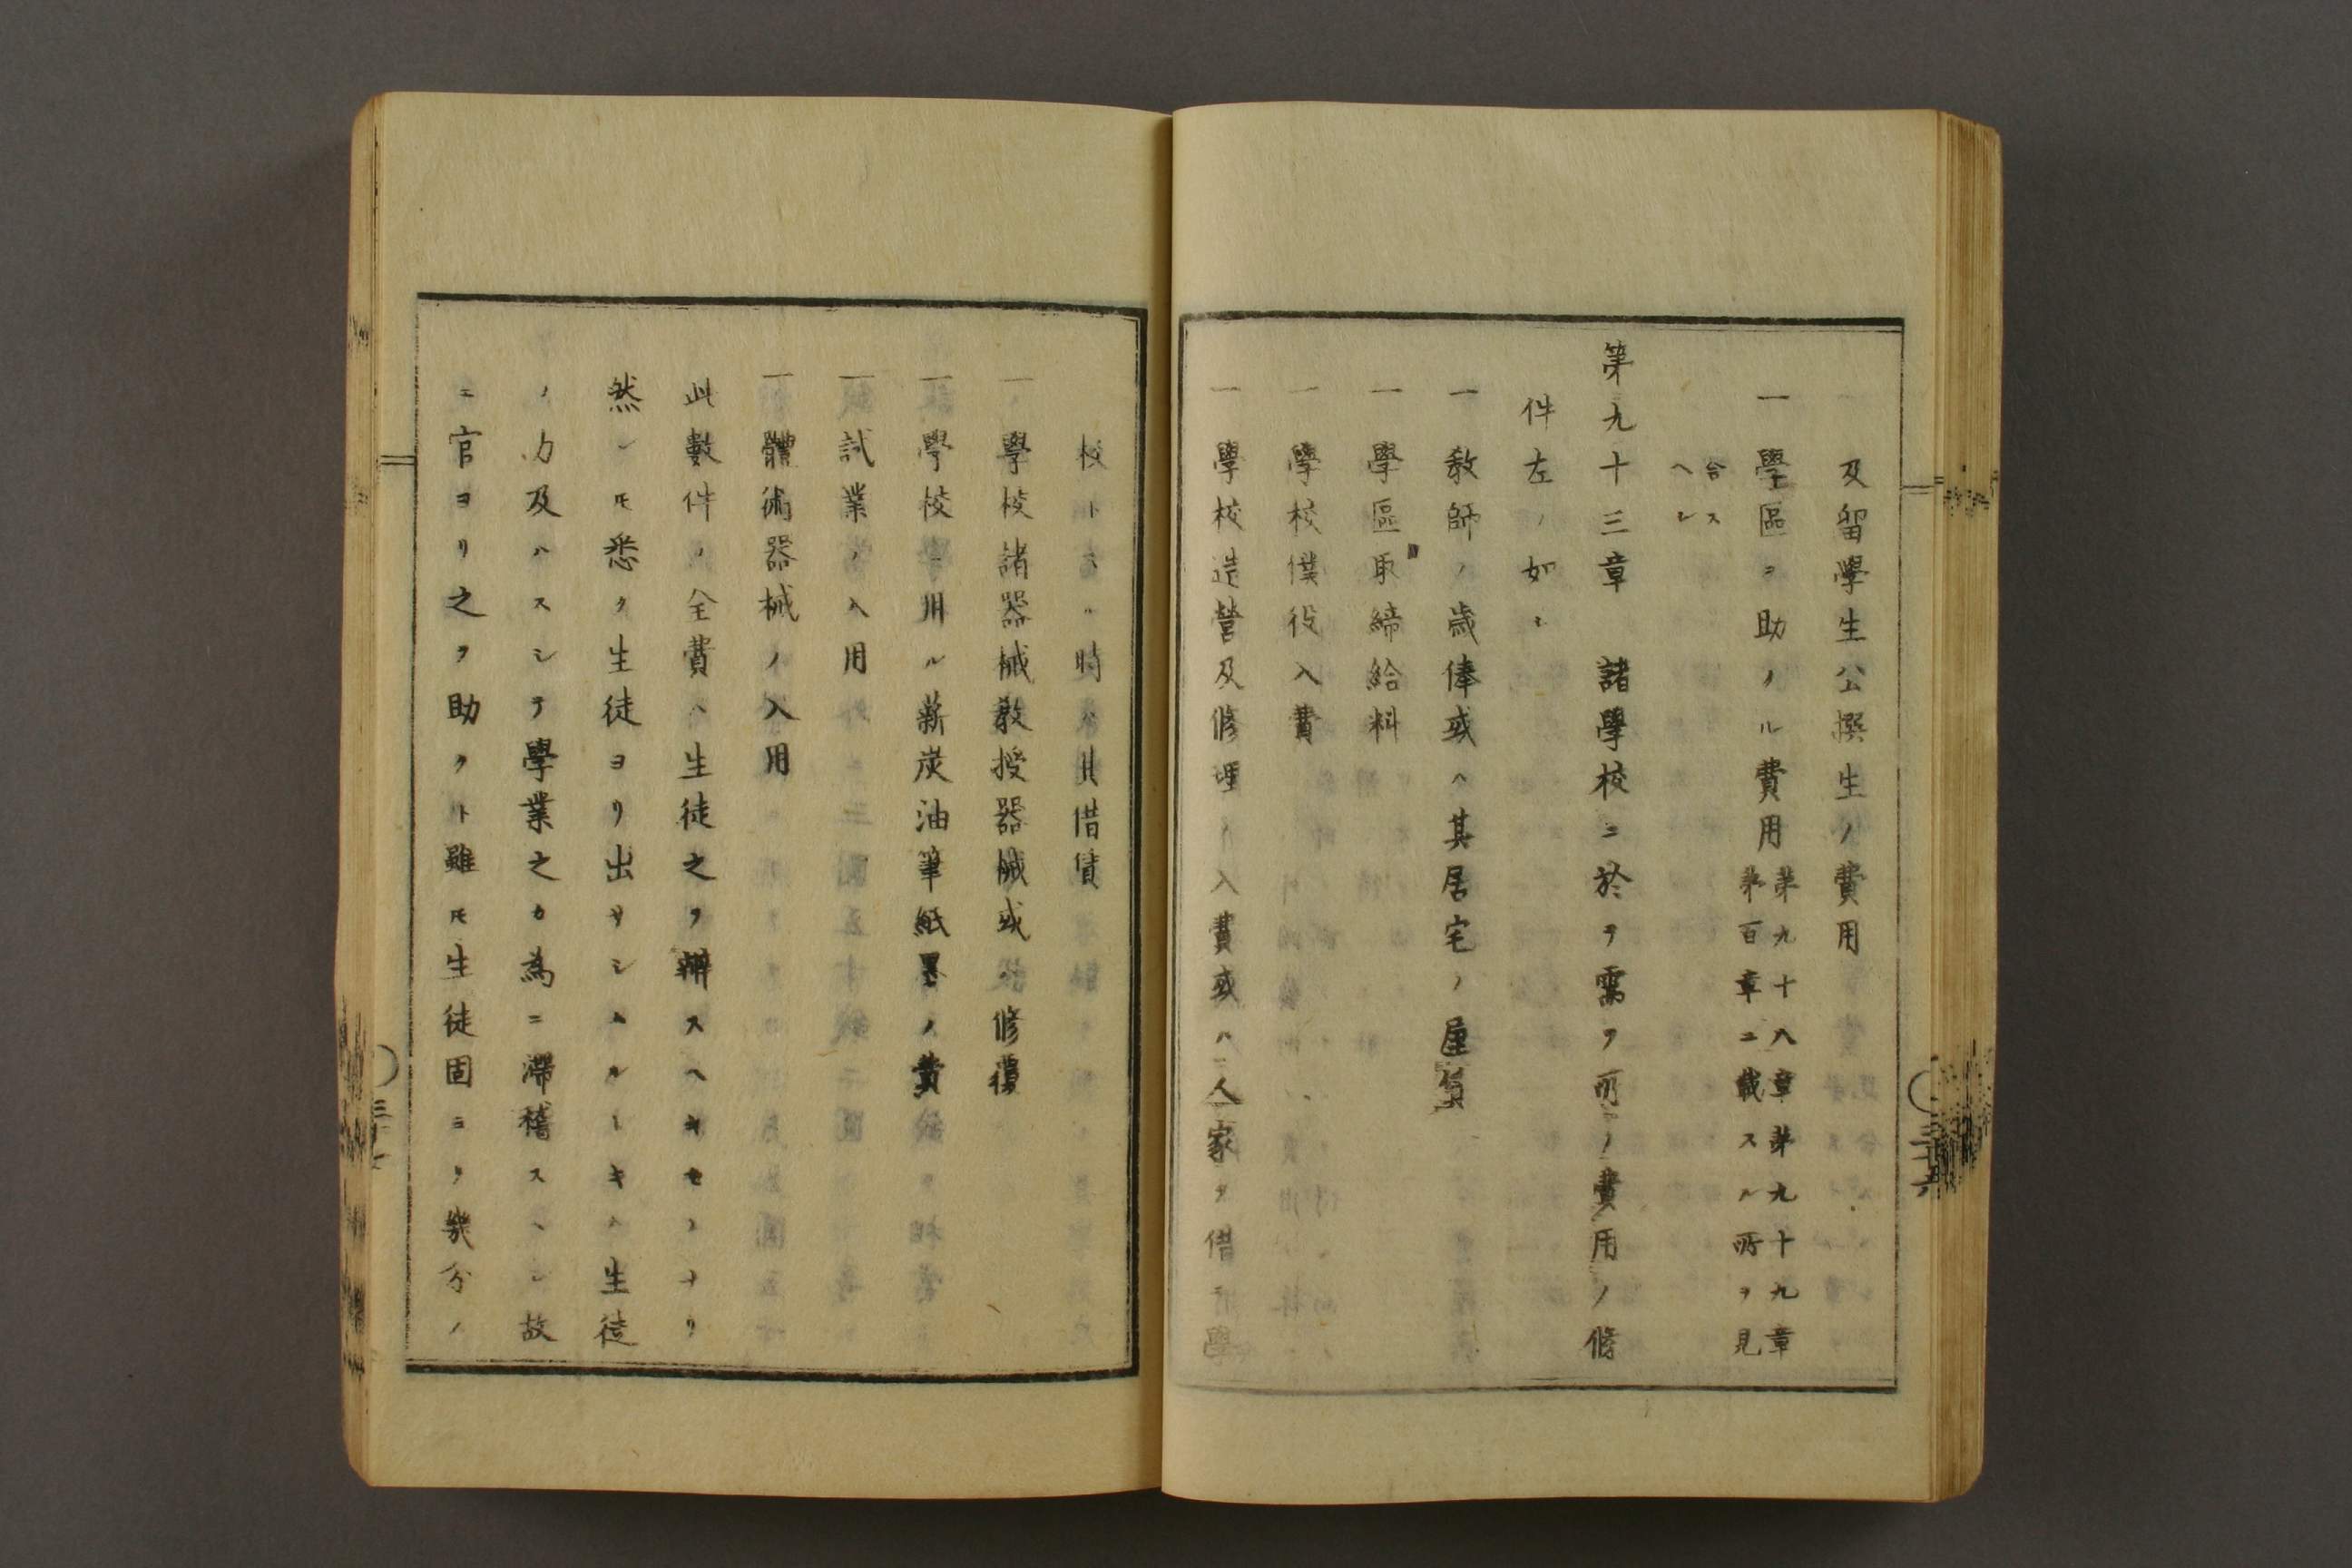 及留學生公撰生ノ費用
一學區ヲ助クル費用第九十八章第九十九章
第百章ニ載スル所ヲ見
合ス
ヘシ
第九十三章 諸學校ニ於テ需フ所ノ費用ノ條
件左ノ如シ
一教師ノ歳俸或ハ其居宅ノ屋賃
一學區取締給料
一學校僕役入費
一學校造營及修理ノ入費或ハ人家ヲ借テ學
校トナス時ハ其借賃
一學校諸器械教授器械或ハ修覆
一學校ニ用ル薪炭油筆紙墨ノ費
一試業ノ入用
一體術器械ノ入用
此數件ノ全費ハ生徒之ヲ辨スヘキモノナリ
然レ𪜈悉ク生徒ヨリ出サシムルトキハ生徒
ノ力及ハスシテ學業之カ為ニ滯稽スヘシ故
ニ官ヨリ之ヲ助クト雖𪜈生徒固ヨリ幾分ノ
三十六
三十七